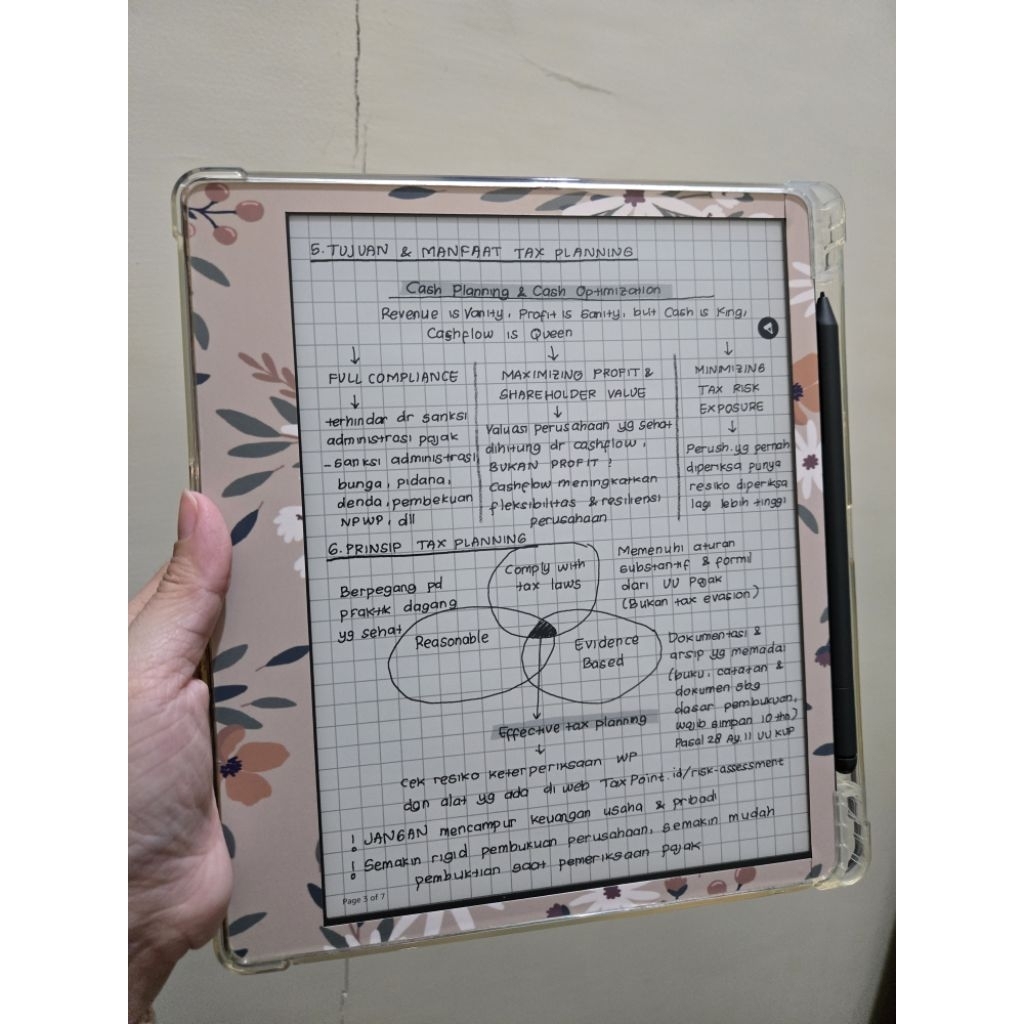 5. TUJUAN & MANFAAT TAX PLANNING
Cash Planning & Cash Optimization
Revenue is Vanity, Profit is Sanity, but Cash is King,
Cashflow is Queen
↓
FULL COMPLIANCE
↓
terhindar dr sanksi
administrasi pajak
- Sanksi administrasi
bunga, pidana,
denda, pembekuan
NPWP, dll
↓
MAXIMIZING PROFIT &
SHAREHOLDER VALUE
↓
Valuasi perusahaan yg sehat
dihitung dr cashflow,
BUKAN PROFIT!
Cashflow meningkatkan
fleksibilitas & resiliensi
perusahaan
↓
MINIMIZING
TAX RISK
EXPOSURE
↓
Perush. yg pernah
diperiksa punya
resiko diperiksa
lagi lebih tinggi
6. PRINSIP TAX PLANNING
Berpegang pd
praktik dagang
yg sehat
Comply with
tax laws
Memenuhi aturan
substantif & formil
dari UU Pajak
(Bukan tax evasion)
Reasonable
Evidence
Based
Dokumentasi &
arsip yg memadai
(buku, catatan &
dokumen sbg
dasar pembukuan,
wajib simpan 10 thn)
Pasal 28 Ay. 11 UU KUP
↓
Effective tax planning
↓
Cek resiko keterperiksaan WP
dgn alat yg ada di web TaxPoint.id/risk-assessment
! JANGAN mencampur keuangan usaha & pribadi
! Semakin rigid pembukuan perusahaan, semakin mudah
pembuktian saat pemeriksaan pajak
Page 3 of 7